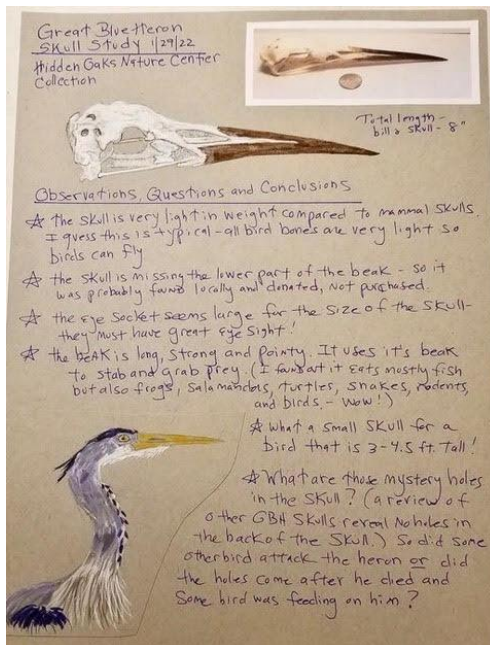 Great Blue Heron
Skull Study 1/29/22
Hidden Oaks Nature Center
Collection
Total length -
bill & skull - 8"
Observations, Questions and Conclusions
☆ the skull is very light in weight compared to mammal skulls.
I guess this is typical - all bird bones are very light so
birds can fly
☆ the skull is missing the lower part of the beak - so it
was probably found locally and donated, not purchased.
☆ the eye socket seems large for the size of the skull -
they must have great eye sight!
☆ the beak is long, strong and pointy. It uses it's beak
to stab and grab prey. (I found out it eats mostly fish
but also frogs, salamanders, turtles, snakes, rodents,
and birds. - Wow!)
☆ What a small skull for a
bird that is 3-4.5 ft. Tall!
☆ What are those mystery holes
in the skull? (a review of
other GBH skulls reveal no holes in
the back of the skull.) So did some
other bird attack the heron or did
the holes come after he died and
some bird was feeding on him?